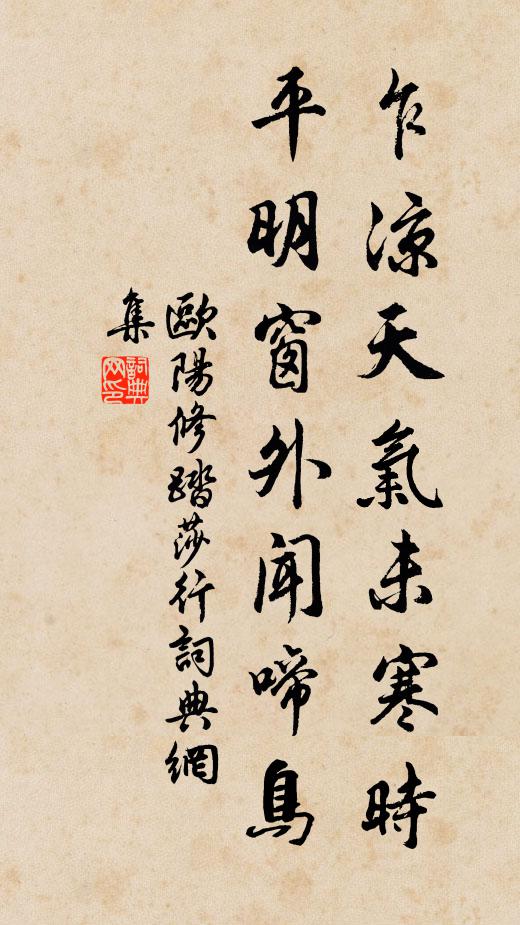 乍涼天氣未寒時
平明窗外聞啼鳥
歐陽修踏莎行詞典網
集
詞典
网印